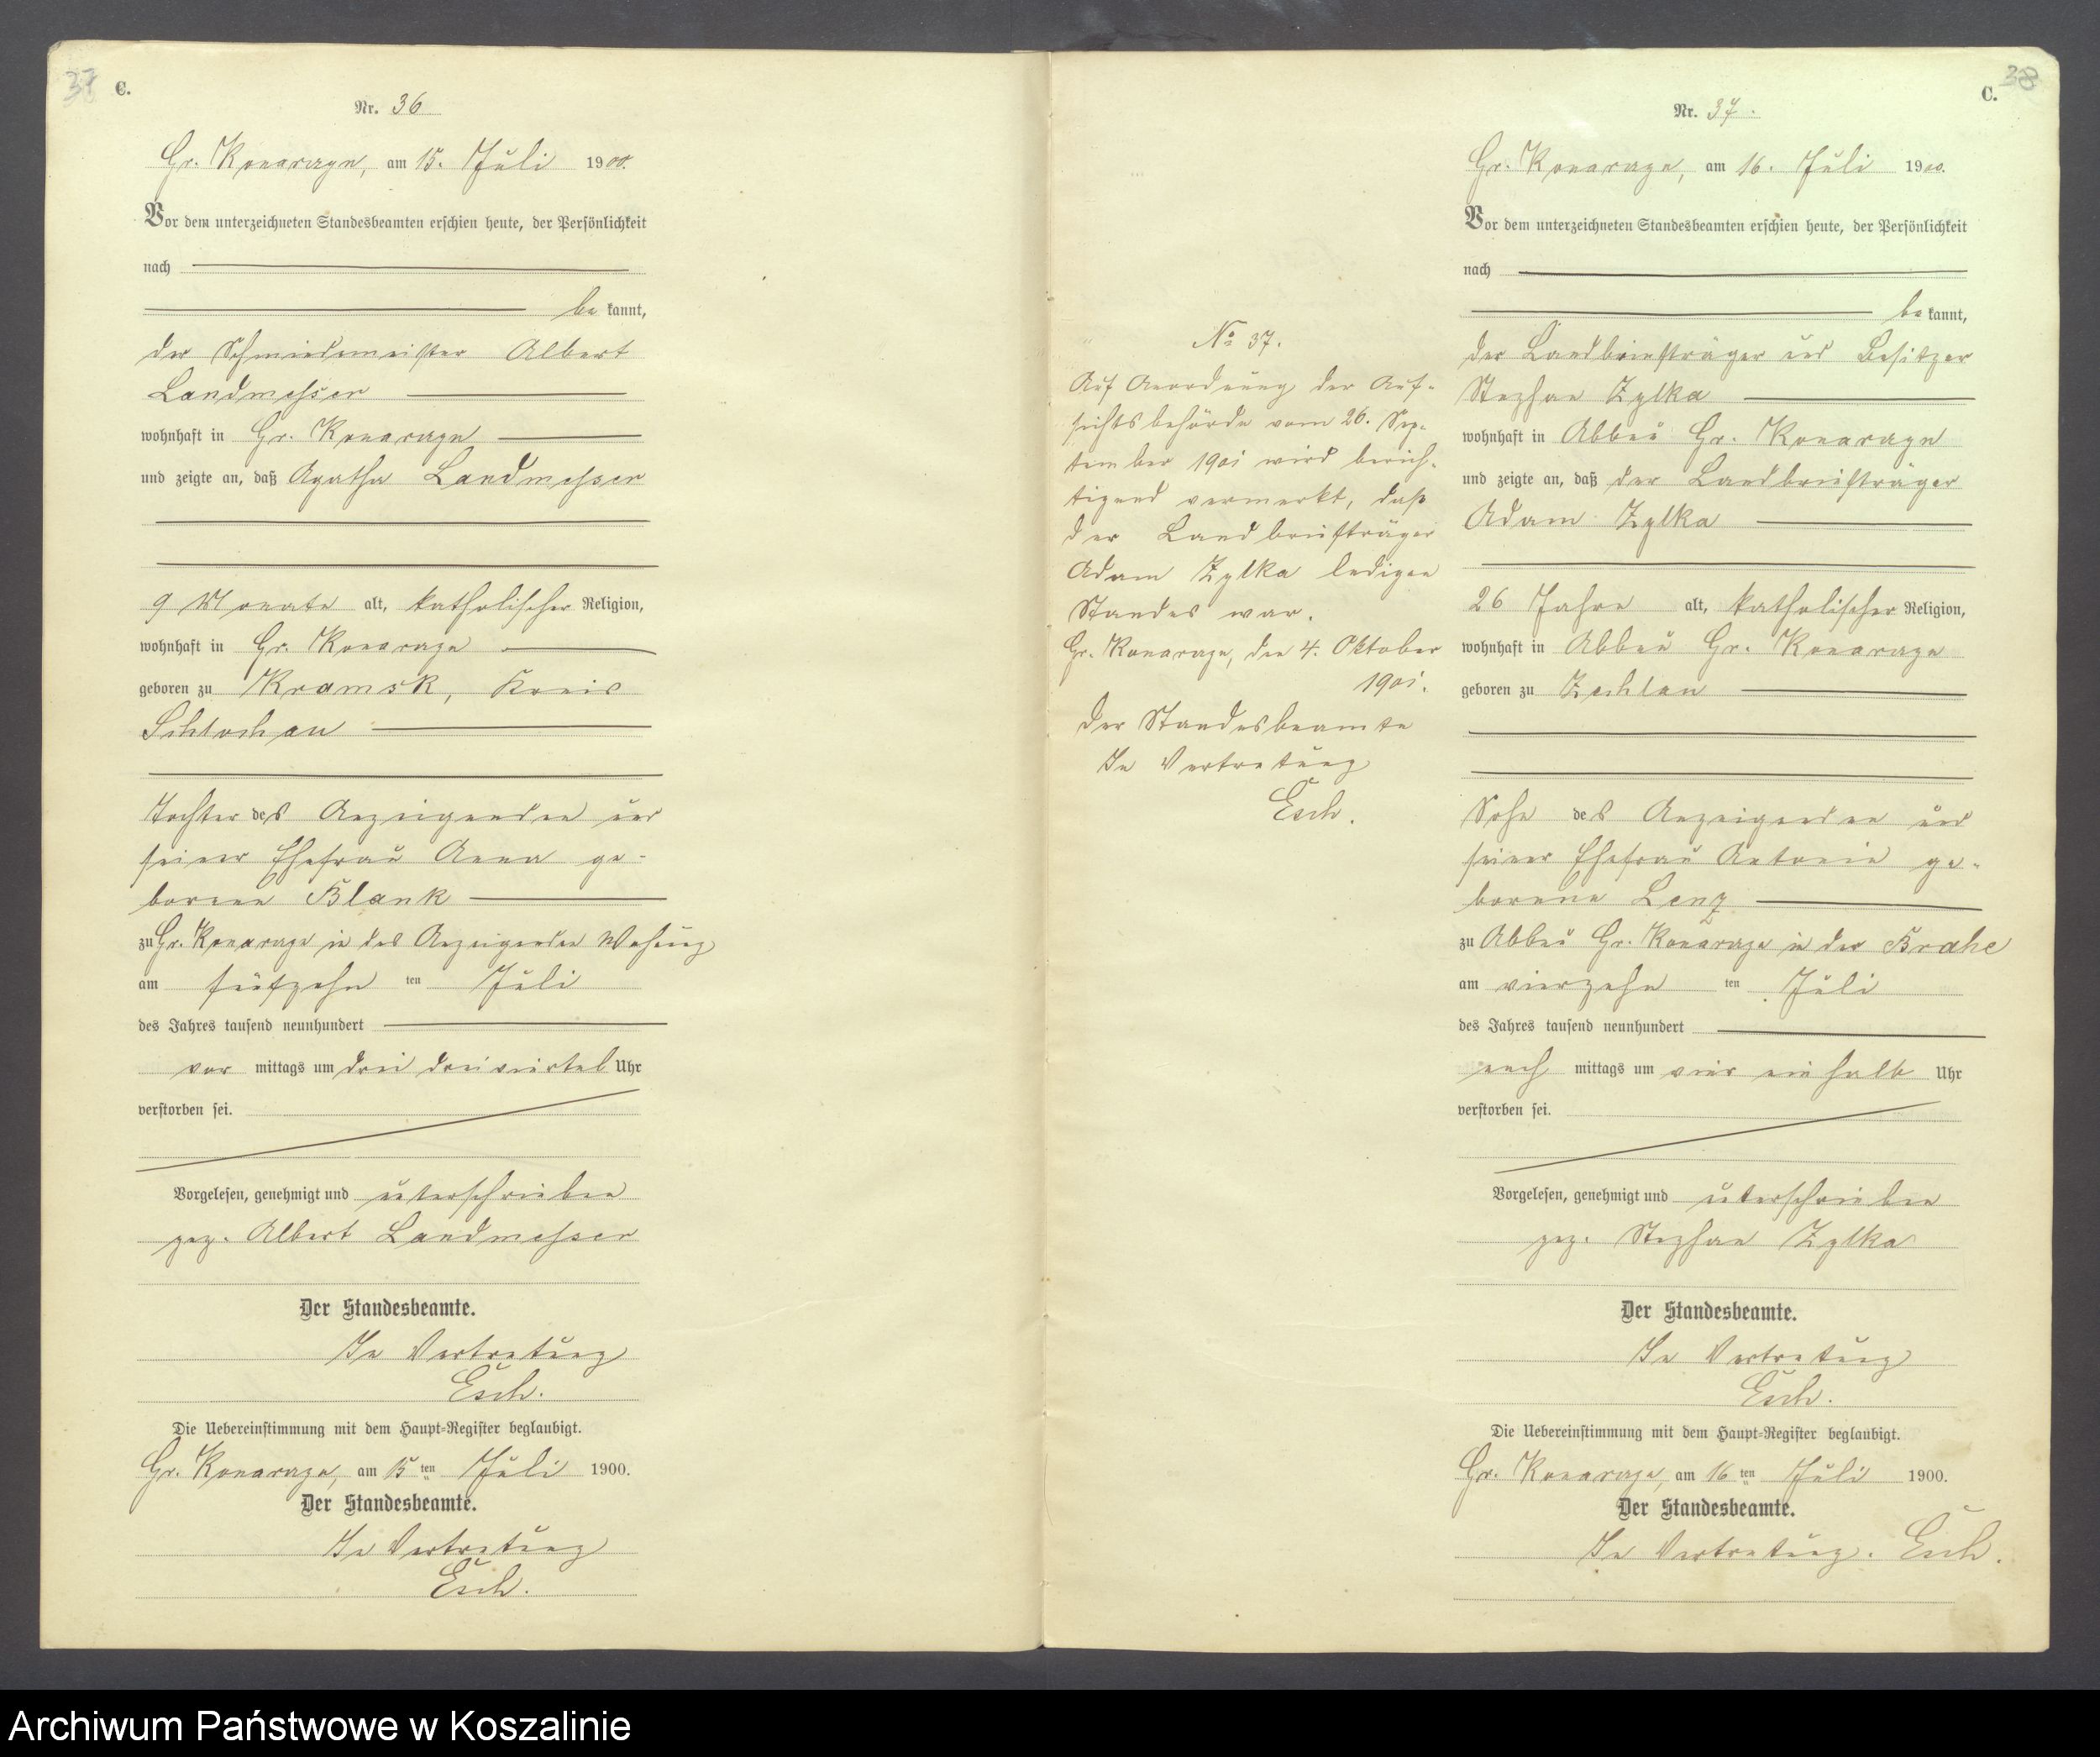 37
C.
Nr. 36
Gr. Konarzyn, am 15. Juli 1900.
Vor dem unterzeichneten Standesbeamten erschien heute, der Persönlichkeit
nach
bekannt,
der Schmiedemeister Albert
Landmesser
wohnhaft in Gr. Konarzyn
und zeigte an, daß Agatha Landmesser
9 Monate alt, katholischer Religion,
wohnhaft in Gr. Konarzyn
geboren zu Kramsk, Kreis
Schlochau
Tochter des Anzeigenden und
seiner Ehefrau Anna ge-
borene Blank
zu Gr. Konarzyn in des Anzeigenden Wohnung
am fünfzehnten Juli
des Jahres tausend neunhundert
vor mittags um drei dreiviertel Uhr
verstorben sei.
Vorgelesen, genehmigt und unterschrieben
gez. Albert Landmesser
Der Standesbeamte.
In Vertretung
Esch.
Die Uebereinstimmung mit dem Haupt-Register beglaubigt.
Gr. Konarzyn, am 15ten Juli 1900.
Der Standesbeamte.
In Vertretung
Esch.
No 37.
Auf Anordnung der Auf-
sichtsbehörde vom 26. Sep-
tember 1901 wird berich-
tigend vermerkt, daß
der Landbriefträger
Adam Zylka ledigen
Standes war.
Gr. Konarzyn, den 4. Oktober
1901.
Der Standesbeamte
In Vertretung
Esch.
38
C.
Nr. 37.
Gr. Konarzyn, am 16. Juli 1900.
Vor dem unterzeichneten Standesbeamten erschien heute, der Persönlichkeit
nach
bekannt,
der Landbriefträger und Besitzer
Stephan Zylka
wohnhaft in Abbau Gr. Konarzyn
und zeigte an, daß der Landbriefträger
Adam Zylka
26 Jahre alt, katholischer Religion,
wohnhaft in Abbau Gr. Konarzyn
geboren zu Zechlau
Sohn des Anzeigenden und
seiner Ehefrau Antonie ge-
borene Lenz
zu Abbau Gr. Konarzyn in der Brahe
am vierzehnten Juli
des Jahres tausend neunhundert
nach mittags um vier ein halb Uhr
verstorben sei.
Vorgelesen, genehmigt und unterschrieben
gez. Stephan Zylka
Der Standesbeamte.
In Vertretung
Esch.
Die Uebereinstimmung mit dem Haupt-Register beglaubigt.
Gr. Konarzyn, am 16ten Juli 1900.
Der Standesbeamte.
In Vertretung. Esch.
Archiwum Państwowe w Koszalinie